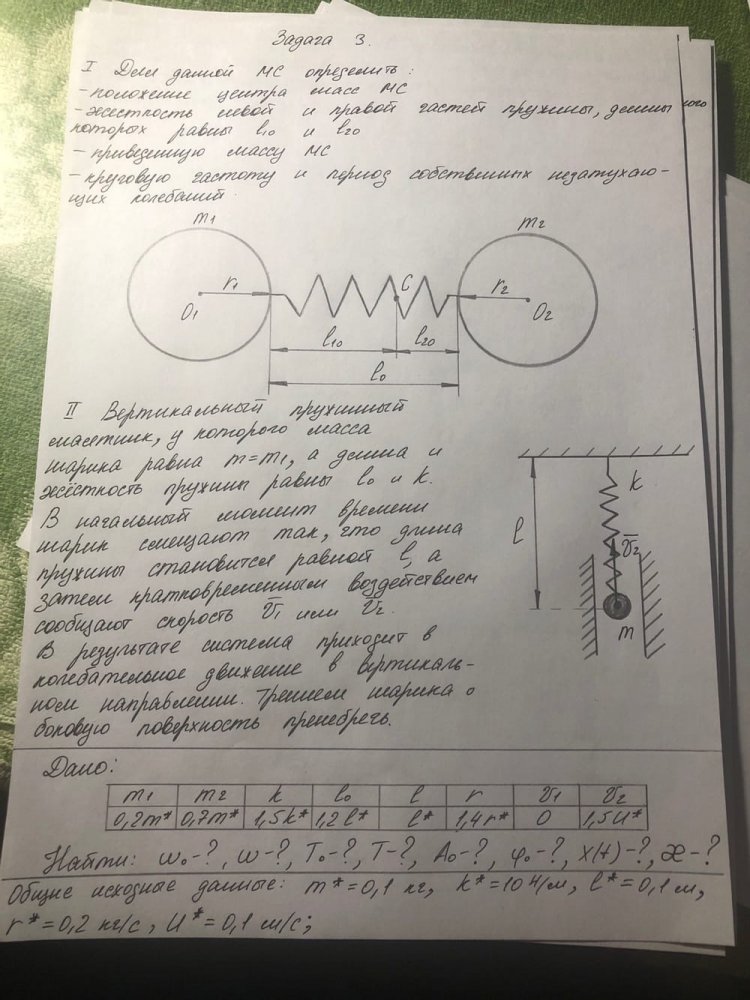 Задача 3.
I Для данной МС определить:
- положение центра масс МС
- жесткость левой и правой частей пружины, длины
которых равны l₁₀ и l₂₀
- приведенную массу МС
- круговую частоту и период собственных незатухаю-
щих колебаний.
m₁
m₂
r₁
C
r₂
O₁
O₂
l₁₀
l₂₀
l₀
II Вертикальный пружинный
маятник, у которого масса
шарика равна m=m₁, а длина и
жёсткость пружины равны l₀ и k.
В начальный момент времени
шарик смещают так, что длина
пружины становится равной l, а
затем кратковременным воздействием
сообщают скорость v̅₁ или v̅₂.
В результате система приходит в
колебательное движение в вертикаль-
ном направлении. Трением шарика о
боковую поверхность пренебречь.
k
l
v̅₂
m
Дано:
m₁ m₂ k l₀ l r v₁ v₂
0,2m* 0,7m* 1,5k* 1,2l* l* 1,4r* 0 1,5U*
Найти: ω₀-?, ω-?, T₀-?, T-?, A₀-?, φ₀-?, x(t)-?, æ-?
Общие исходные данные: m*=0,1 кг, k*=10 Н/м, l*=0,1 м,
r*=0,2 кг/с, U*=0,1 м/с;